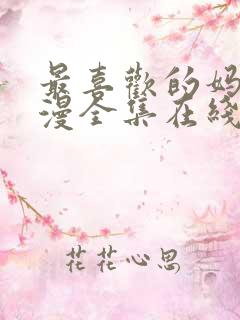 最喜歡的妈
漫全集在綫
花花心思